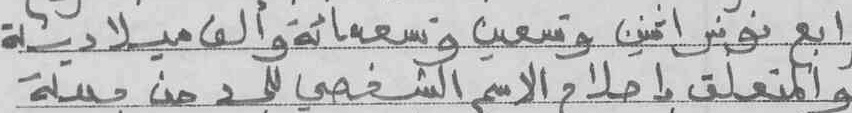 رابع نونبر اثنين وتسعين وتسعمائة وألف ميلادية
والمتعلق بإصلاح الاسم الشخصي للمسماة من